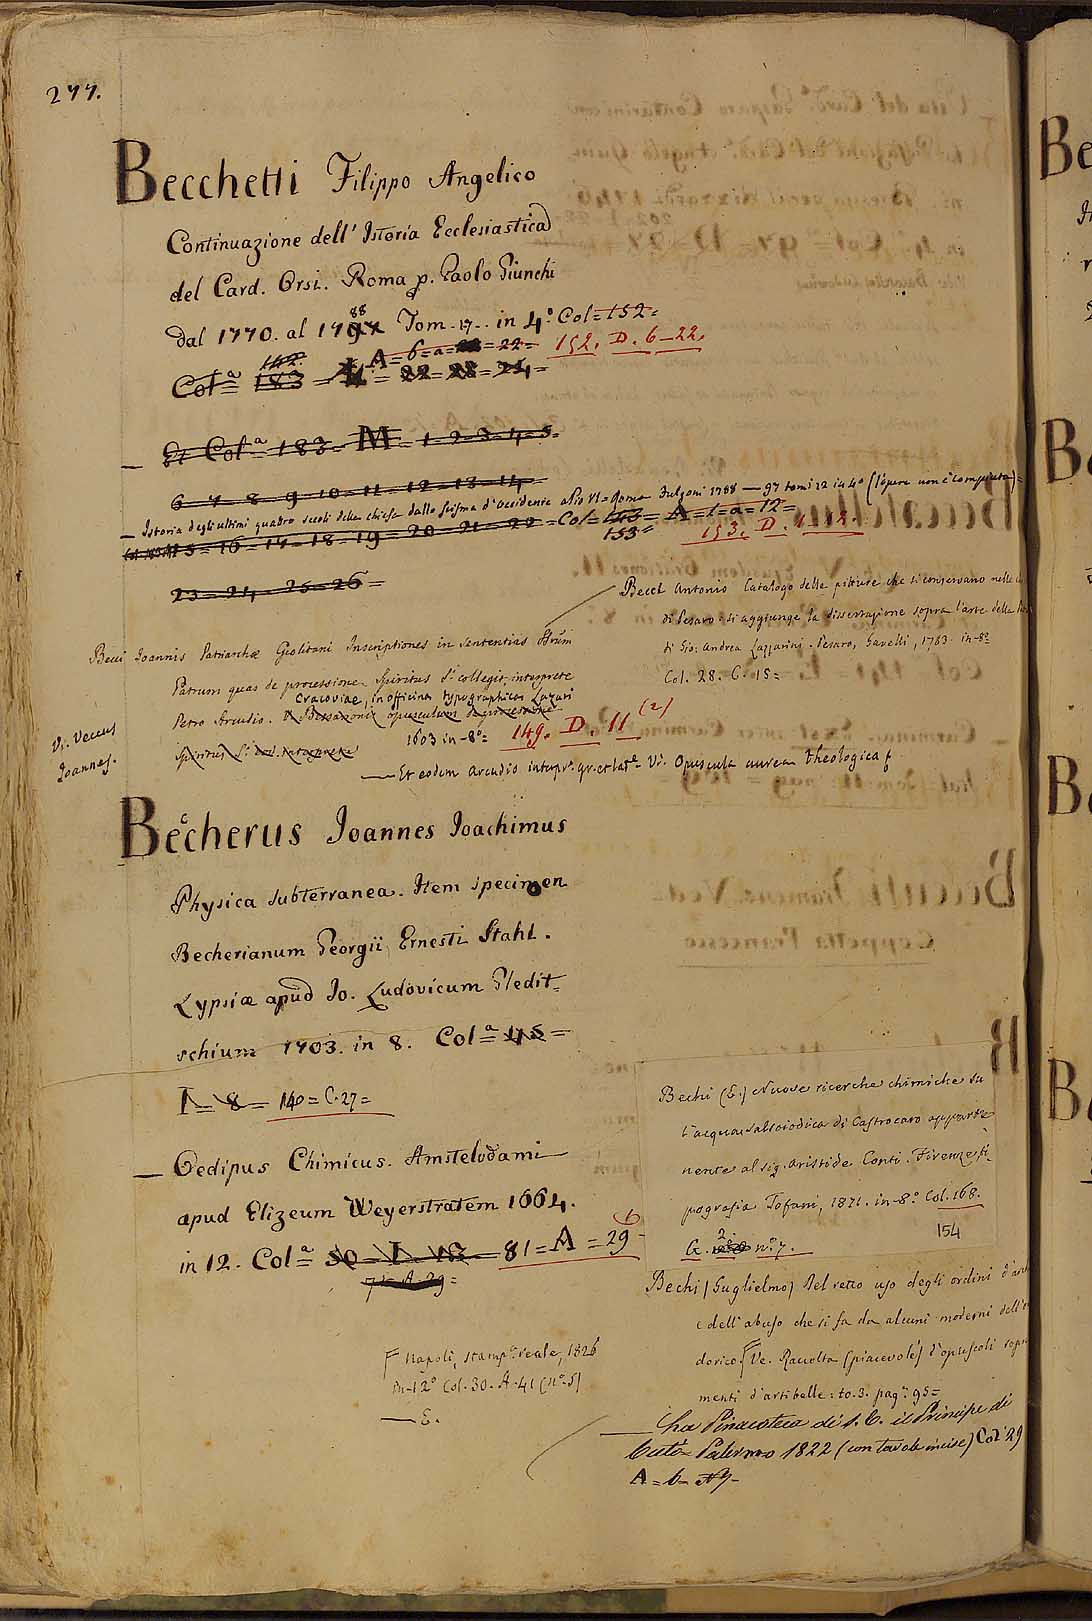 277.
Becchetti Filippo Angelico
Continuazione dell' Istoria Ecclesiastica
del Card. Orsi. Roma p. Paolo Giunchi
dal 1770. al 1797 88 Tom. 17.. in 4.° Col= 152=
A= 6= a= = 22= 152. D. 6-22.
Col.ª= 183 142. = = 22= 28= 24=
Et Col.ª 183= M= 1-2-3-4-5-
6-7-8-9-10-11-12-13-14-
— Istoria degli ultimi quattro secoli della chiesa dallo scisma d'occidente a Pio VI= Roma Fulgoni 1788 — 97 tomi 12 in 4° (l'opera non è compiuta)=
15= 16= 17= 18= 19= 20= 21= 22= Col= 143= A= 1= a= 12=
153= 153. D. 1-12.
23=24=25=26=
Becci Antonio Catalogo delle pitture che si conservano nelle
di Pesaro: si aggiunge la dissertazione sopra l'arte della
di Gio: Andrea Lazzarini. Pesaro, Gavelli, 1783. in-8°
Col. 28. C. 15=
Becci Joannis Patriarchæ Inscriptiones in sententias
Patrum quas de processione Spiritus S.i collegit, interprete
Cracoviae, in officina typographica Lazari
Petro Arcudio. V. Bessarionis opusculum de processione
1603 in-8°= 149. D. 11 (2)
Spiritus S.i eod. interprete
Vi. Veccus
Joannes.
— Et eodem Arcudio interpr. gr. et lat.e Vi. Opuscula aurea theologica f
Becherus Joannes Joachimus
Physica subterranea. Item specimen
Becherianum Georgii Ernesti Stahl.
Lypsiæ apud Jo. Ludovicum Gledit=
schium 1703. in 8. Col.ª= 45=
I= 8= 140= C.27=
— Oedipus Chimicus. Amstelodami
apud Elizeum Weyerstratem 1664.
in 12. Col.ª= 50 I 18 81= A= 29 6
71= A. 29=
Bechi (E.) Nuove ricerche chimiche su
l'acqua salsoiodica di Castrocaro apparte
nente al sig. Aristide Conti. Firenze ti
pografia Tofani, 1871. in-8.° Col. 168.
154
G. 2. n.° 7.
Bechi (Guglielmo) Del retto uso degli ordini d'
e dell'abuso che si fa da alcuni moderni dell'
dorico. F Ve. Raccolta (piacevole) d'opuscoli sopra
menti d'arti belle: to. 3. pag. 95=
F Napoli, stamp.a reale, 1826
in-12° Col. 30. A. 41 (n.° 5)
— E.
— La Pinacoteca di S. E. il Principe di
Cutò= Palermo 1822 (con tavole incise) Col. 29
A= 6=